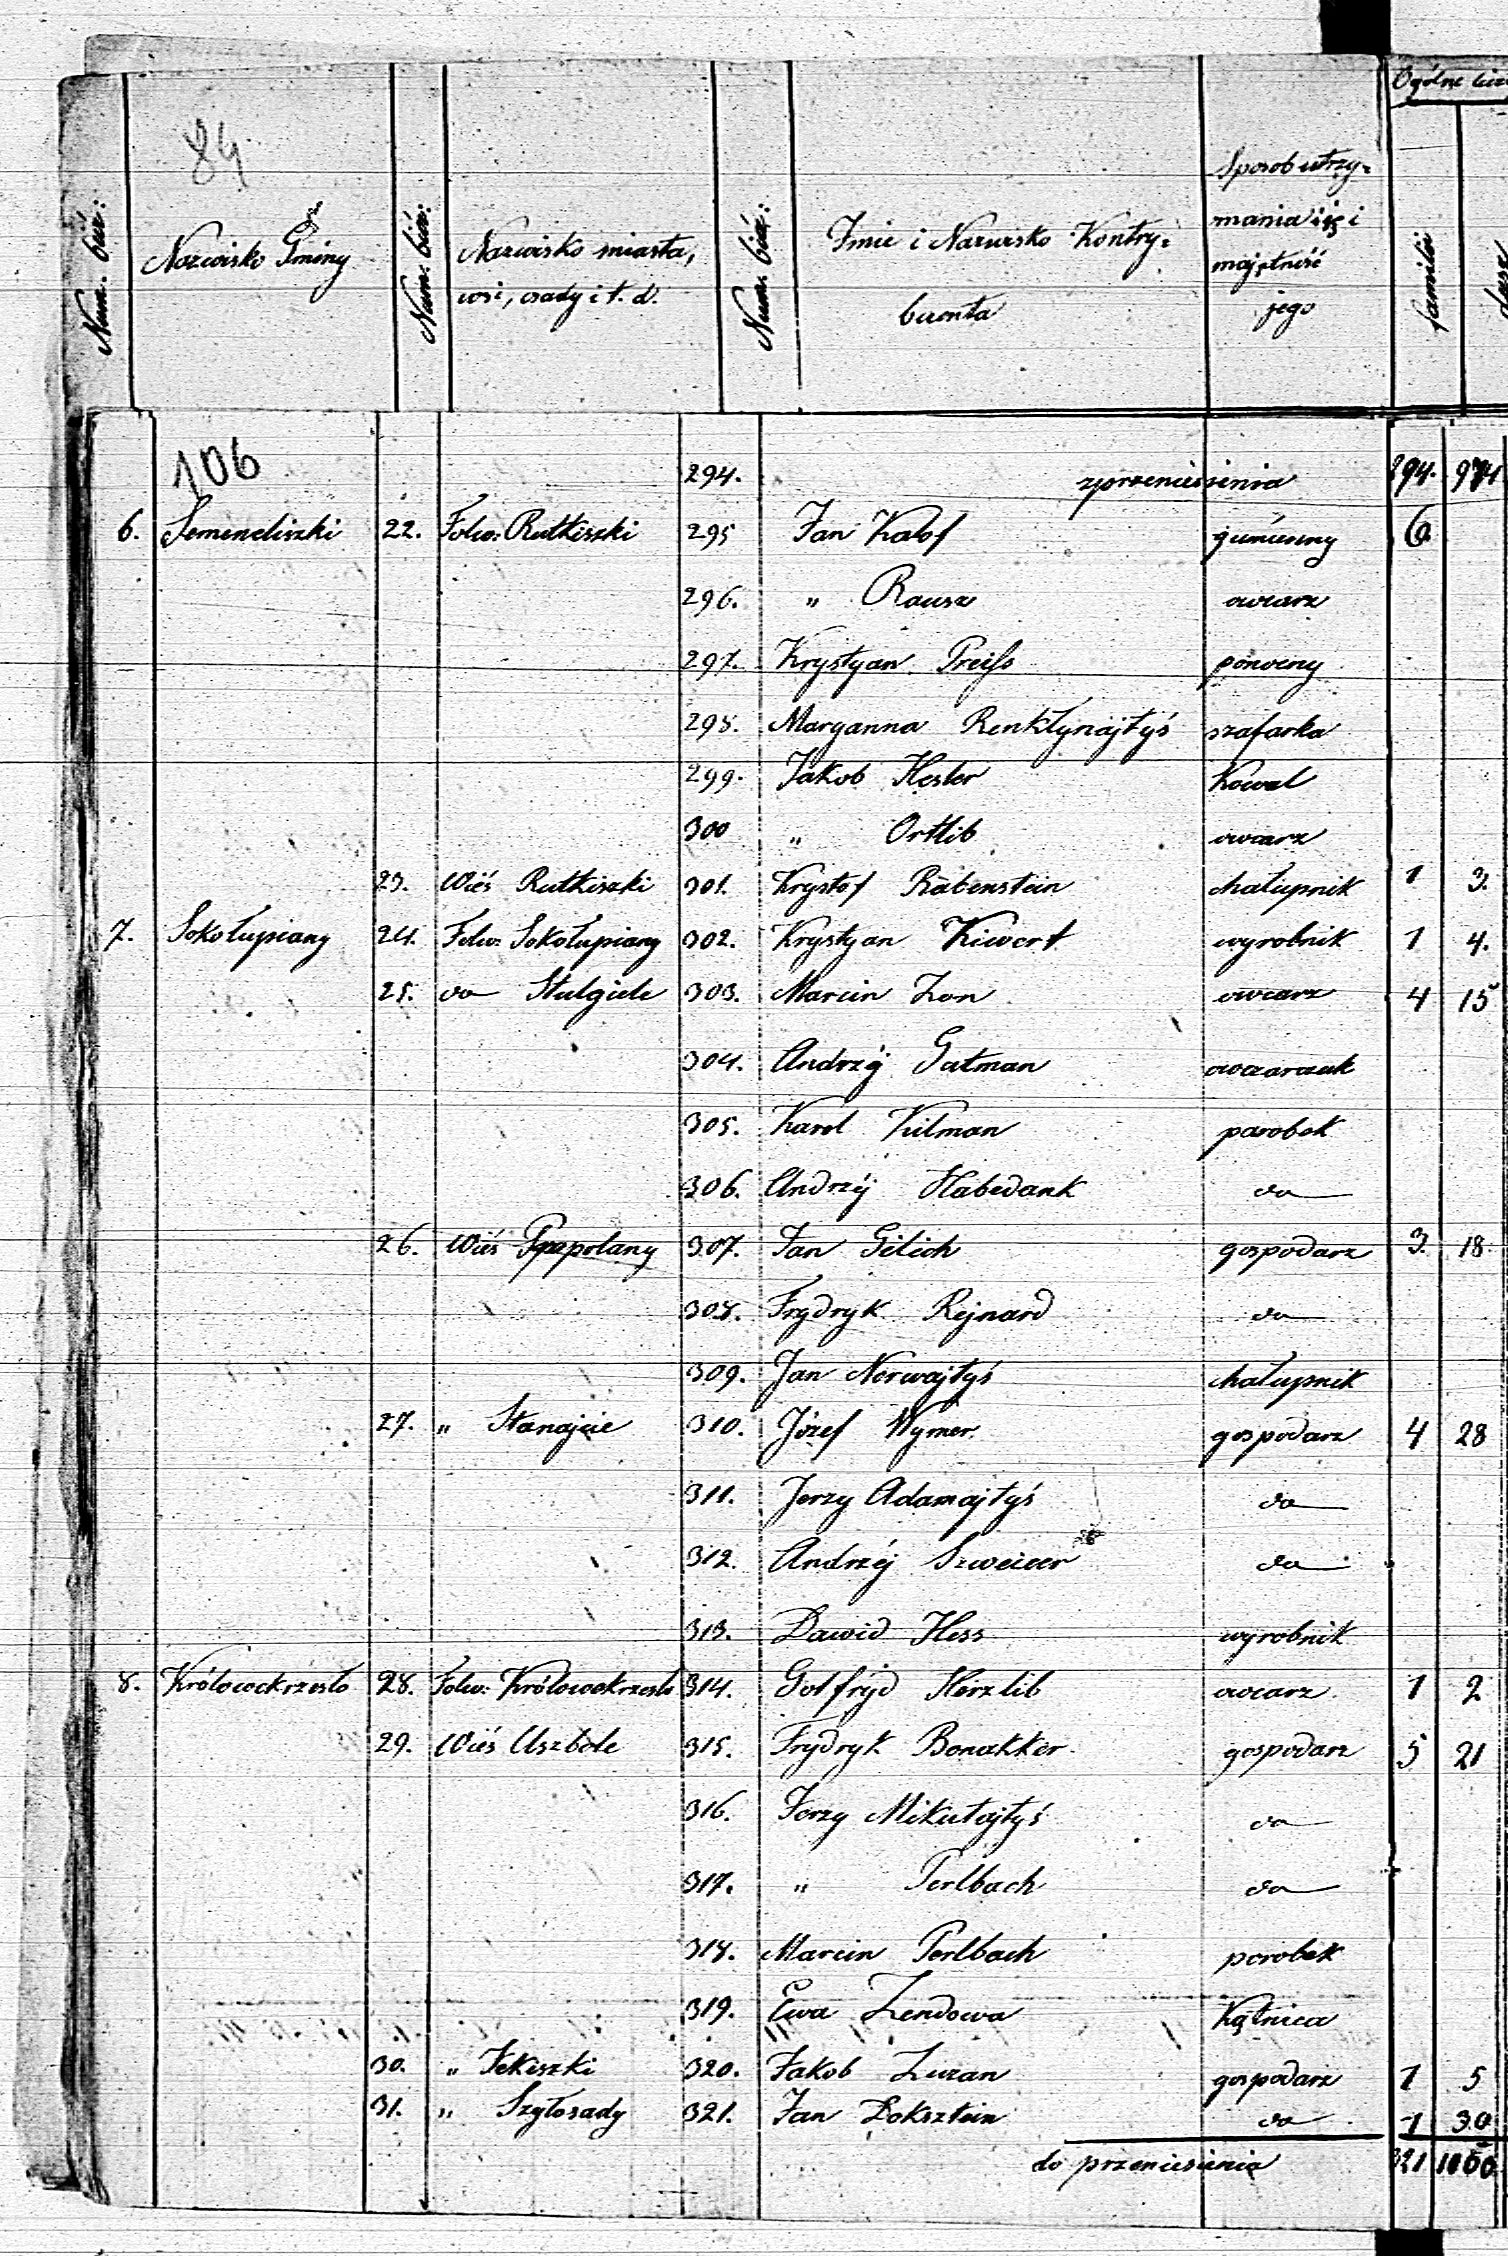 84
Ogólne
Num. bież:
Nazwisko Gminy
Num. bież:
Nazwisko miasta,
wsi, osady i t. d.
Num. bież:
Imie i Nazwisko Kontry=
buenta
Sposob utrzy=
mania się i
majętność
jego
familii
dusz
106
294. zprzeniesienia 294. 974
6. Semeneliszki 22. Folw: Rutkiszki 295 Jan Kalof gumienny 6
296. " Rausz owcarz
297. Krystyan Preiss
298. Maryanna Renktynajtyś szafarka
299. Jakob Hesler Kowal
300 " Ortlib owcarz
23. Wieś Rutkiszki 301. Krystof Rabenstein chałupnik 1 3.
7. Sokołupiany 24. Folw: Sokołupiany 302. Krystyan Kiwert wyrobnik 1 4.
25. do Stulgiele 303. Marcin Zon owcarz 4 15
304. Andrzéj Gutman owczarczuk
305. Karol Kilman parobek
306. Andrzéj Habedank do
26. Wieś Popolany 307. Jan Gilich gospodarz 3. 18
308. Frydryk Rejnard do
309. Jan Nerwajtyś chałupnik
27. " Stanajcie 310. Józef Wymer gospodarz 4 28
311. Jerzy Adamajtyś do
312. Andrzéj Szweicer do
313. Dawid Hess wyrobnik
8. Królowokrzesło 28. Folw: Królowokrzesło 314. Gotfryd Herzlib owcarz 1 2
29. Wieś Uszbole 315. Frydryk Bonakker gospodarz 5 21
316. Jerzy Mikutajtyś do
317. " Perlbach do
318. Marcin Perlbach parobek
319. Ewa Zendowa Kątnica
30. " Jekiszki 320. Jakob Luzan gospodarz 1 5
31. " Szylosady 321. Jan Doksztein do 1 30
do przeniesienia 321